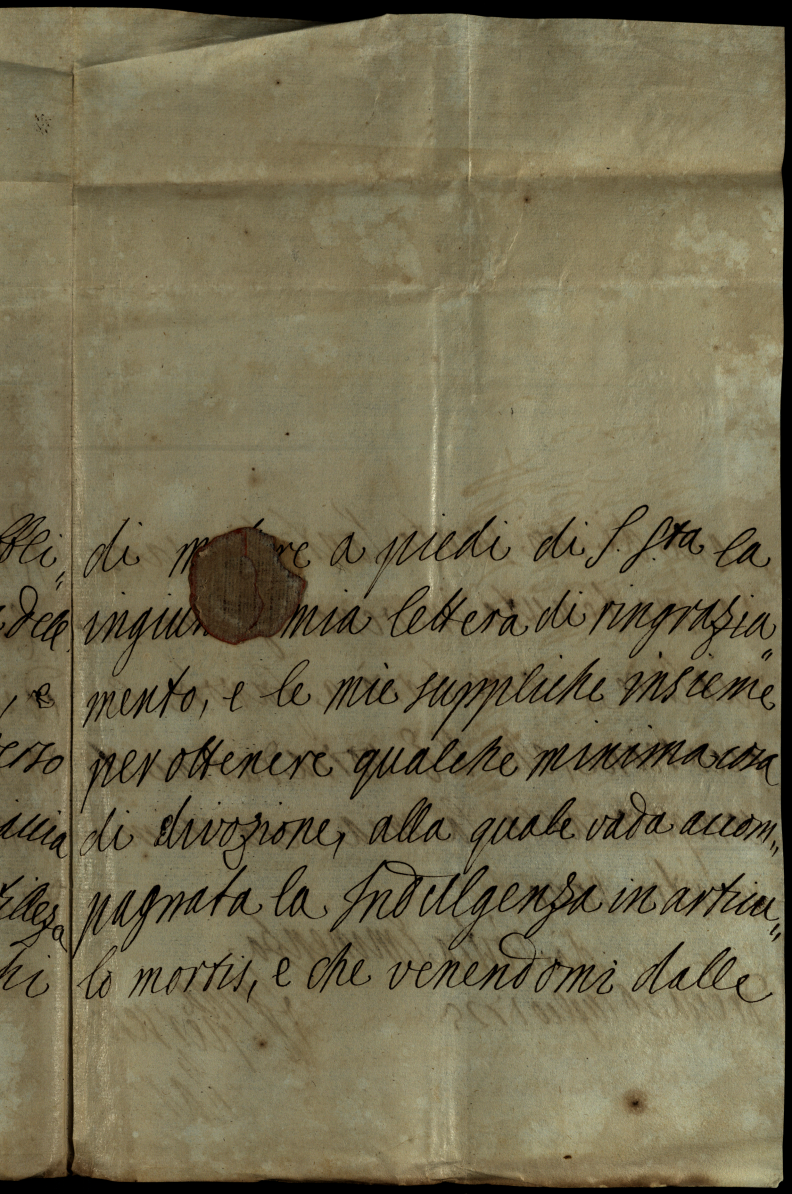 di a piedi di S. S.ta la
mia lettera di ringrazia„
mento, e le mie suppliche insieme
per ottenere qualche minima cosa
di divozione, alla quale vada accom„
pagnata la Indulgenza in articu„
lo mortis, e che venendomi dalle